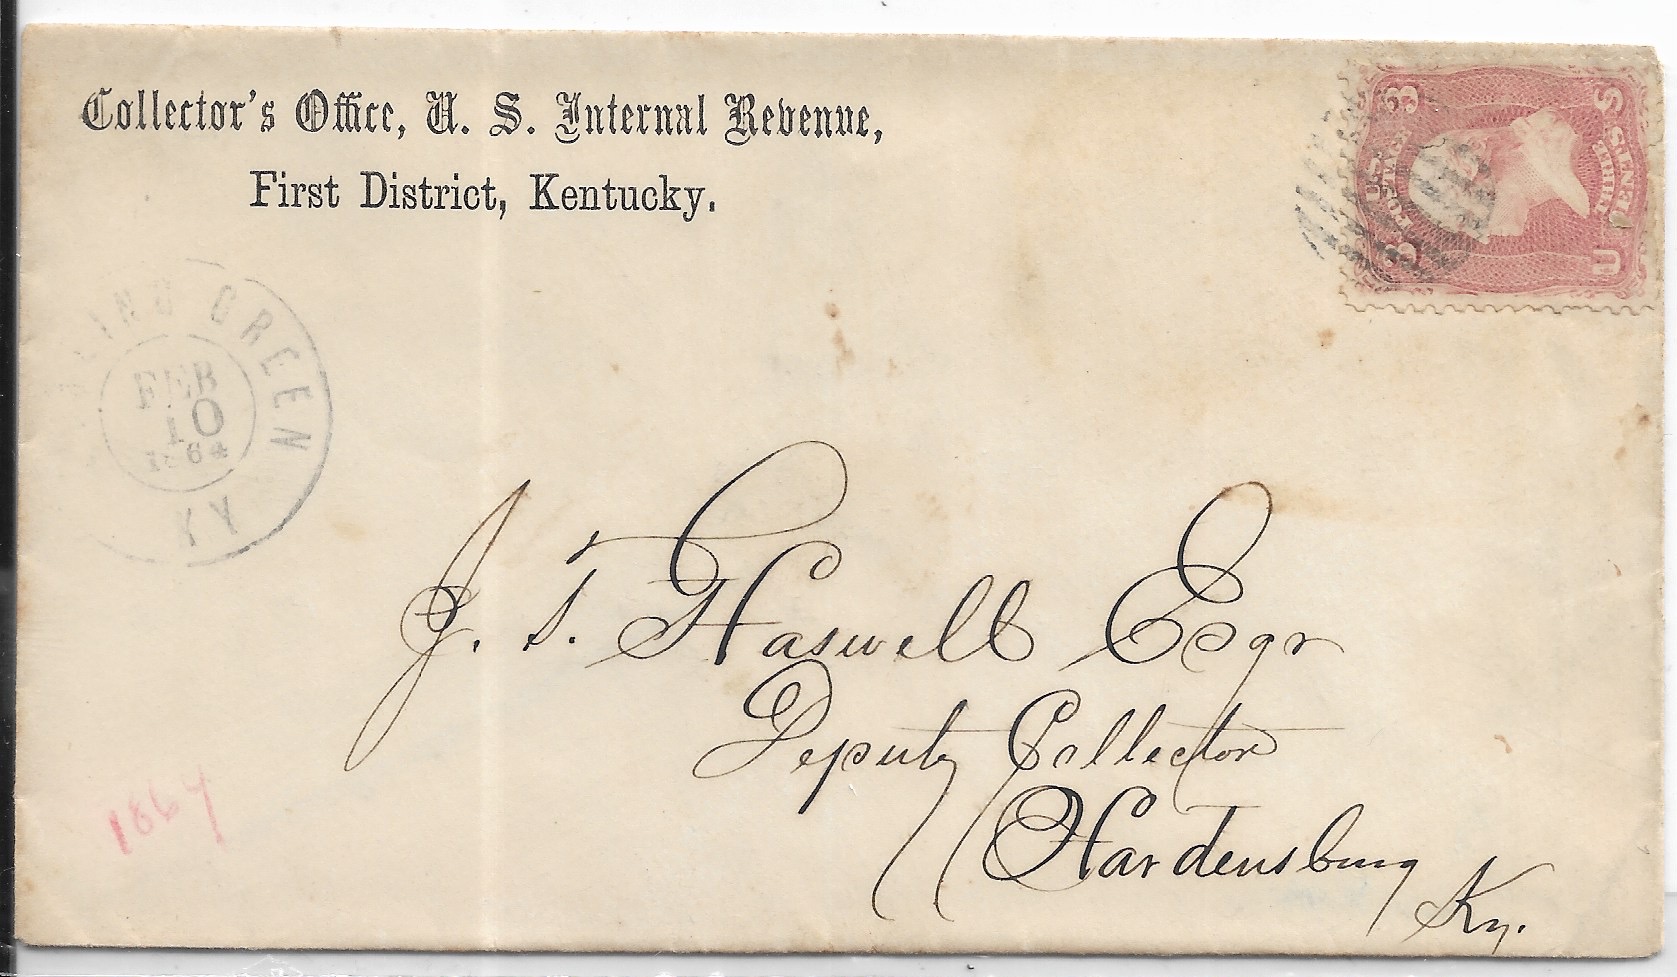 Collector's Office, U. S. Internal Revenue,
First District, Kentucky.
3 U.S. POSTAGE 3
U S
THREE CENTS
GREEN KY
FEB
10
1864
J. T. Haswell Esqr
Deputy Collector
Hardensburg
Ky.
1864